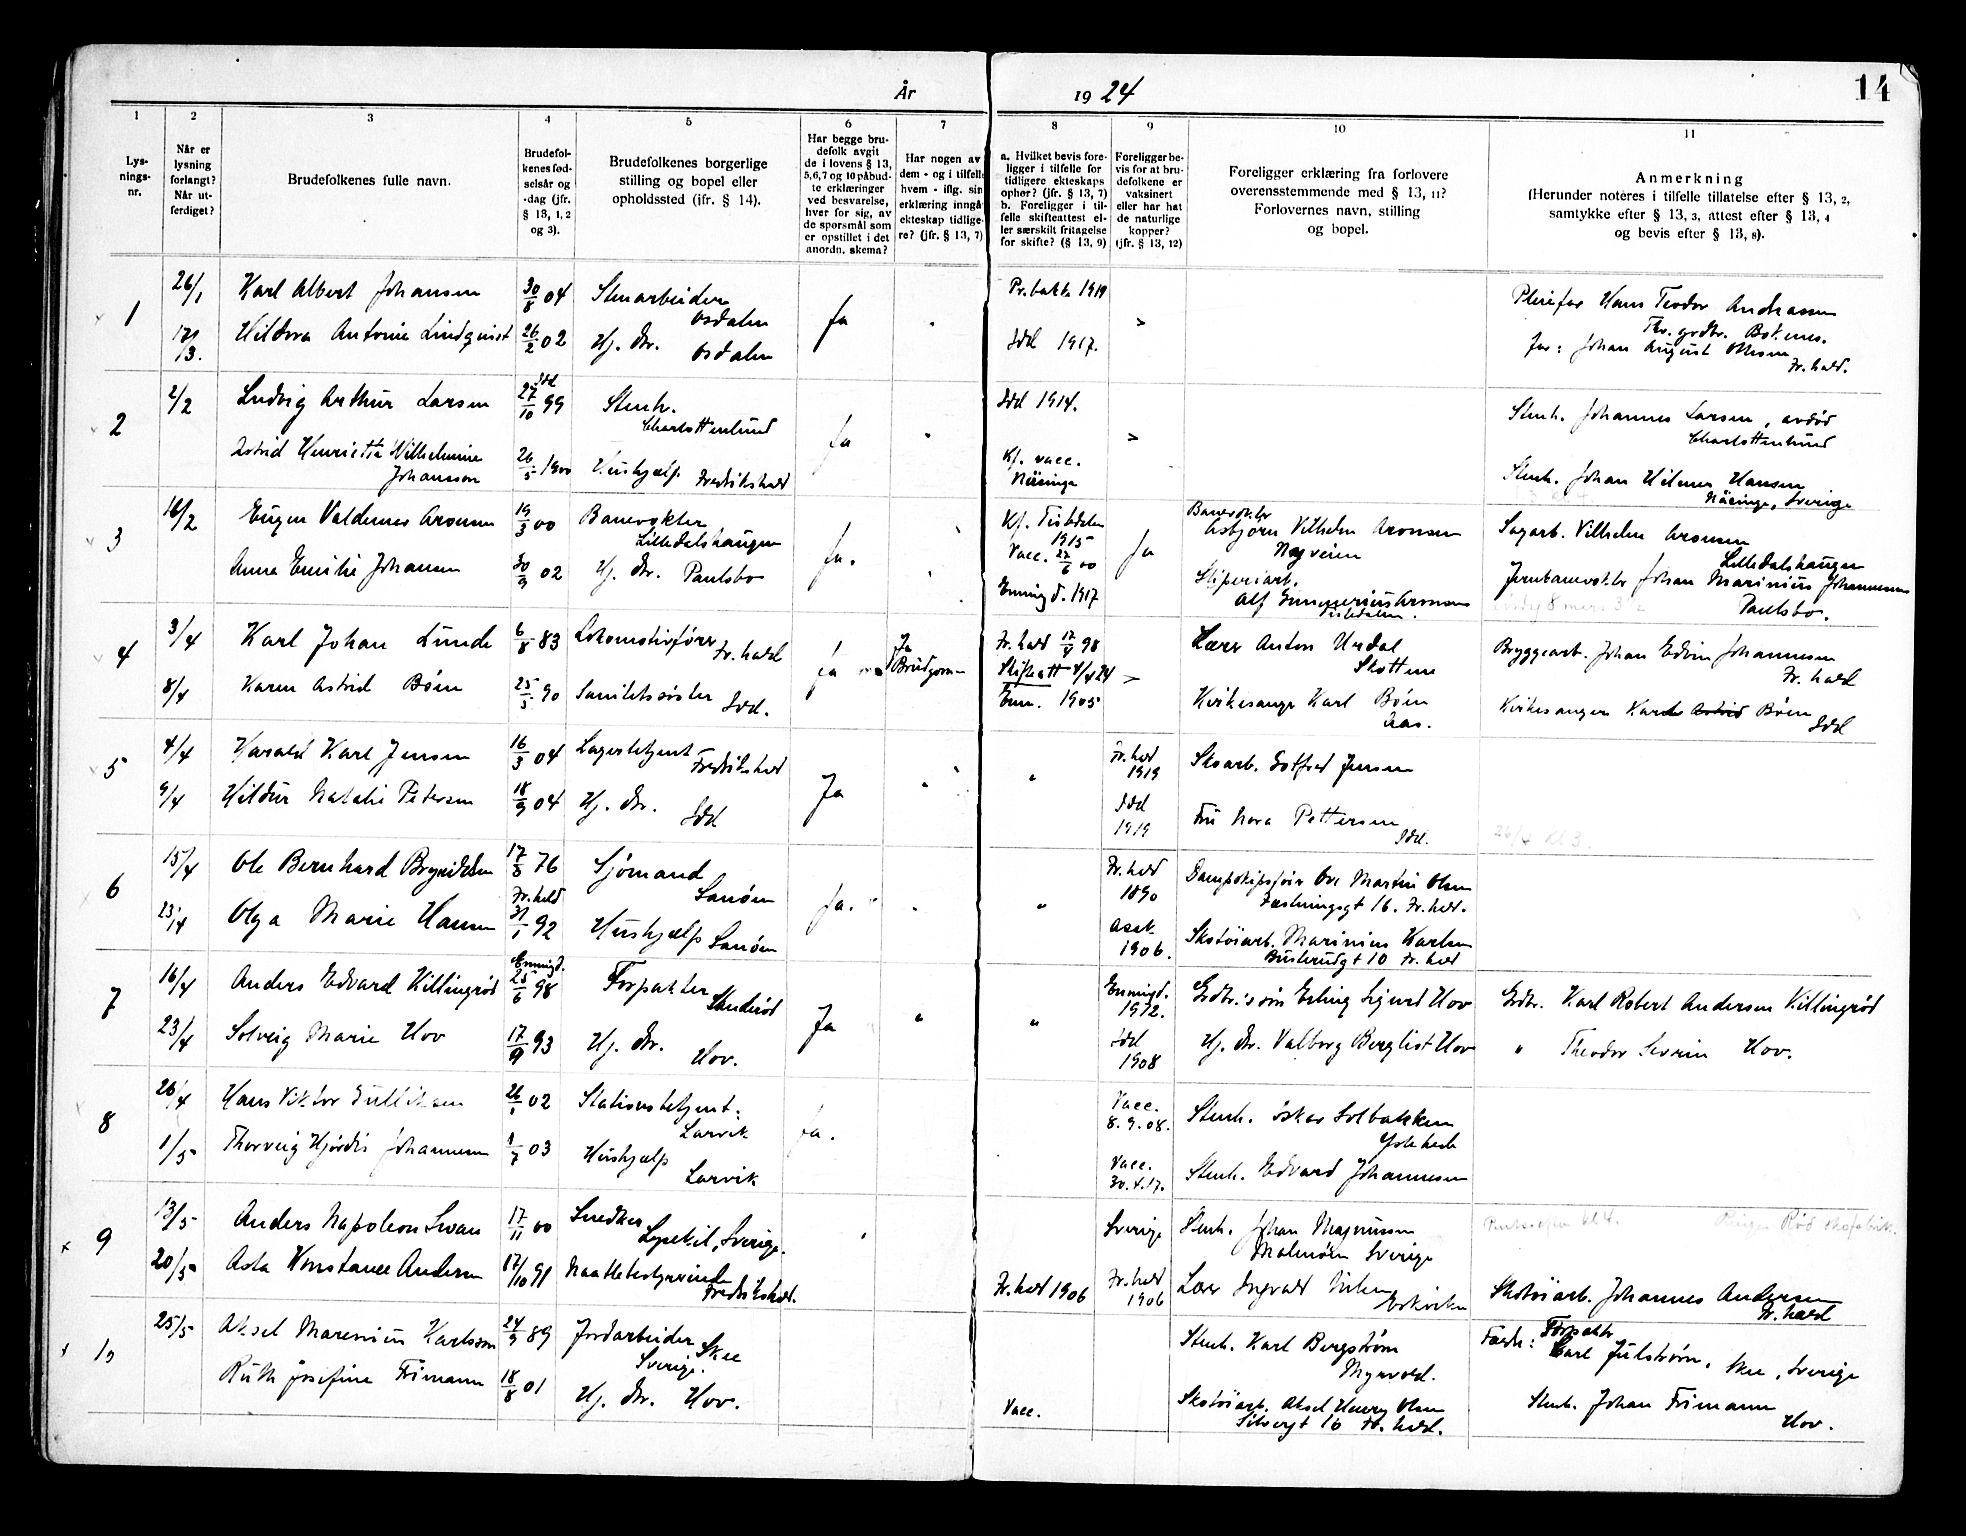 År 1924
14
1 2 3 4 5 6 7 8 9 10 11
Lys-
nings-
nr.
Når er
lysning
forlangt?
Når ut-
ferdiget?
Brudefolkenes fulle navn.
Brudefol-
kenes fød-
selsår og
-dag (jfr.
§ 13, 1, 2
og 3).
Brudefolkenes borgerlige
stilling og bopel eller
opholdssted (jfr. § 14).
Har begge bru-
defolk avgit
de i lovens § 13,
5,6,7 og 10 påbud-
te erklæringer
ved besvarelse,
hver for sig, av
de spørsmål som
er opstillet i det
anordn. skema?
Har nogen av
dem - og i tilfelle
hvem - iflg. sin
erklæring inngå
ekteskap tidlige-
re? (jfr. § 13, 7)
a. Hvilket bevis fore-
ligger i tilfelle for
tidligere ekteskaps
ophør? (jfr. § 13, 7)
b. Foreligger i til-
felle skifteattest el-
ler særskilt fritagelse
for skifte? (§ 13, 9)
Foreligger be-
vis for at bru-
defolkene er
vaksinert
eller har hat
de naturlige
kopper?
(jfr. § 13, 12)
Foreligger erklæring fra forlovere
overensstemmende med § 13, 11?
Forlovernes navn, stilling
og bopel.
Anmerkning
(Herunder notéres i tilfelle tillatelse efter § 13, 2,
samtykke efter § 13, 3, attest efter § 13, 4
og bevis efter § 13, 8).
1
26/1 Karl Albert Johansen 30/8 04 Stenarbeider
Osdalen
Ja
Pr.bakke 1919
Pleiefar Hans Teodor Andreassen
17/3. Hildora Antonie Lindquist 26/2 02 Hj. dtr. Osdalen
Idd 1917.
far: Johan August
Fr.hald.
2
2/2 Ludvig Arthur Larsen Idd 27/10 99 Stenh.
Charlottenlund
Ja
Idd 1914.
Stenh. Johannes Larsen, avdød
Charlottenlund
Astrid Henrietta Wilhelmine
Johansson
26/5 1900 Hushjælp Fredrikshald
Kf. vacc.
Näsinge
Stenh. Johan Hilmer Hansen
Näsinge, Sverige
3
16/2 Eugen Valdemar Aronsen 19/3 00 Banevokter
Lilledalshaugen
Ja.
Kf. Tistedalen
1915
Vacc. 27/6 00
Ja
Banevokter
Asbjørn Vilhelm Aronsen
Nyveien
Sagarb. Vilhelm Aronsen
Lilledalshaugen
Anna Emilie Johansen 30/9 02 Hj. dtr. Paulsbo
Enningd. 1917
Sliperiarb.
Alf Emmerius Aronsen
Tistedalen.
Jernbanevokter Johan Marinius Johannessen
Paulsbo.
4
3/4 Karl Johan Lunde 6/8 83 Lokomotivfører
Fr.hald
Ja
Ja
Brudgom
Fr.hald 17/4 98
Skifteatt 4/4 24
Lærer Anton Urdal
Skottene
Bryggearb. Johan Edvin Johannesen
Fr.hald
8/4 Karen Astrid Bøen 25/5 90 Sanitetssøster
Idd.
Enn. 1905
Kirkesanger Karl Bøen
Aas.
Kirkesanger Karl Astrid Bøen
Idd
5
4/4 Harald Karl Jensen 16/3 04 Lagerbetjent
Fredrikshald
Ja
Fr.hald
1919
Skoarb. Gotfred Jensen
9/4 Hildur Natalie Petersen 18/9 04 Hj. dtr.
Idd
Idd
1919
Fru Nora Pettersen
Idd.
26/4 kl 3.
6
15/4 Ole Bernhard Bryn 17/3 76 Sjømand
Sanøen
Ja.
Fr.hald
1890
Dampskipsfører Ove Martin Olsen
Fæstningsgt 16. Fr.hald.
23/4 Olga Marie Hansen Fr.hald 31/1 92 Hushjælp Sanøen
Asak
1906.
Skotøiarb. Marinius Karlsen
Busterudgt 10 Fr.hald
7
16/4 Anders Edvard Killingrød Enningd. 25/6 98 Forpakter
Sanderød
Ja
Enningd.
1912.
Grdbr.s søn Erling Sigurd Hov
Grdbr. Karl Robert Andersen Killingrød
23/4 Solveig Marie Hov 17/9 93 Hj. dtr.
Hov.
Idd
1908
Hj. dtr. Valborg Bergliot Hov
" Theodor Severin Hov.
8
26/4 Hans Viktor Gulliksen 26/1 02 Stationsbetjent.
Larvik
Ja.
Vacc.
8.9.08.
Stenh. Oskar Solbakken
1/5 Thorveig Hjørdis Johannesen 1/7 03 Hushjælp
Larvik
Vacc.
30.4.17.
Stenh. Edvard Johannesen
9
13/5 Anders Napoleon Svan 17/11 00 Snedker
Lysekil, Sverige.
Sverige
Stenh. Johan Magnusson
Malmöen Sverige
20/5 Asta Konstance Andersen 17/10 91 Naatlebestyrerinde
Fredrikshald.
Fr.hald 1906
Fr.hald
1906
Lærer Ingvald
Eskeviken
Skotøiarb. Johannes Andersen
Fr.hald
10
25/5 Aksel Marenius Karlsson 24/9 89 Jordarbeider
Skee
Sverige.
Stenh. Karl Bergstrøm
Myrvold.
Forpakter
Carl Julstrøm, Skee, Sverige
Ruth Josefine Frimann 18/8 01 Hj. dtr. Hov.
Vacc.
Skotøiarb. Aksel Henry Olsen
16 Fr.hald.
Stenh. Johan Frimann
Hov.